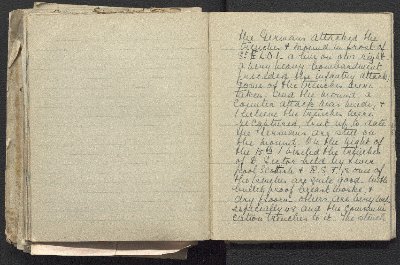 the Germans attacked the
trenches & mound in front of
ST ELOI a mile on our right
a very heavy bombardment
preceded the infantry attack
some of the trenches were
taken, and the mound. a
counter attack was made, &
I believe the trenches were
recaptured, but up to date
the Germans are still on
the mound. On the night of
the 15th I visited the trenches
of E Sector held by Liver
pool Scottish &
the trenches are quite good with
bullet proof breast works, &
dry floors - others are very bad
especially and the communi
cation trenches to it. The